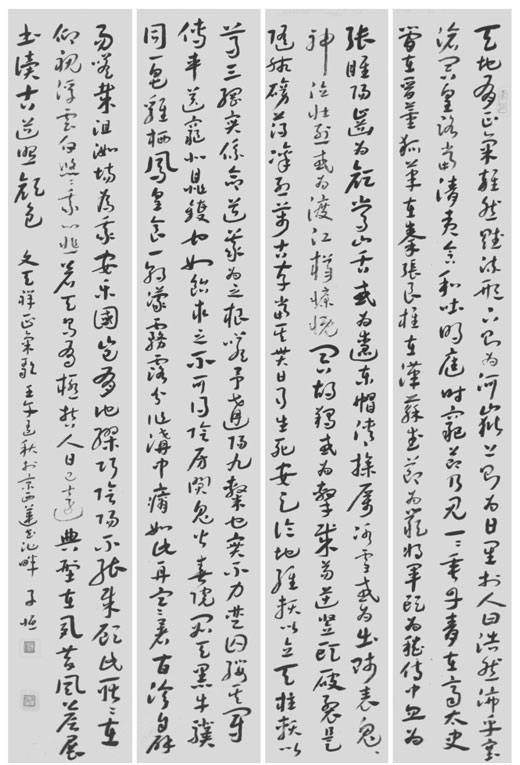 天地有正氣雜然賦流形下則為河嶽上則為日星於人曰浩然沛乎塞
滄冥皇路當清夷含和吐明庭時窮節乃見一一垂丹青在齊太史
簡在晉董狐筆在秦張良椎在漢蘇武節為嚴將軍頭為嵇侍中血為
張睢陽齒為顏常山舌或為遼東帽清操厲冰雪或為出師表鬼
神泣壯烈或為渡江楫慷慨吞胡羯或為擊賊笏逆豎頭破裂是
磅薄凜烈萬古存當其貫日月生死安足論地維賴以立天柱賴以
尊三綱實係命道義為之根嗟予遘陽九隸也實不力楚囚纓其冠
傳車送窮北鼎鑊甘如飴求之不可得陰房闃鬼火春院閟天黑牛驥
同一皂雞栖鳳皇食一朝濛霧露分作溝中瘠如此再寒暑百沴自辟
易嗟哉沮洳場為我安樂國豈有他繆巧陰陽不能賊顧此耿耿在
仰視浮雲白悠悠我心悲蒼天曷有極哲人日已遠典型在夙昔風簷展
書讀古道照顏色 文天祥正氣歌 壬午孟秋於京西蓮花池畔 子恒